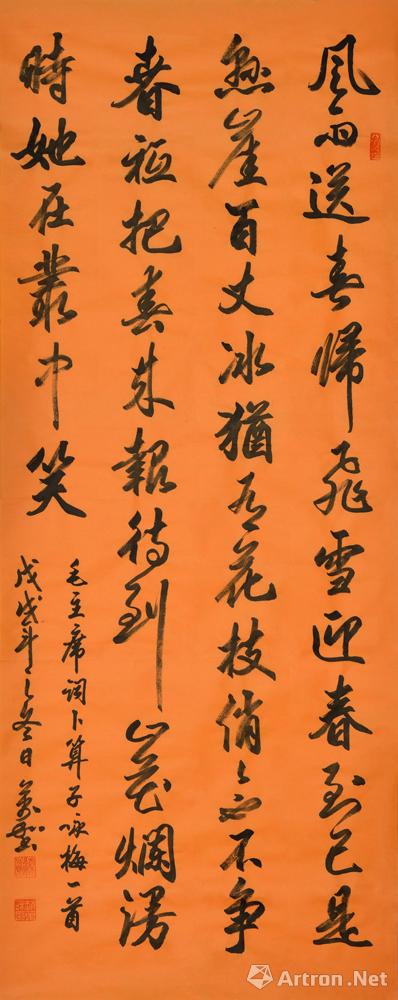 風雨送春歸飛雪迎春到已是
懸崖百丈冰猶有花枝俏〻也不争
春衹把春來報待到山花爛漫
時她在叢中笑
毛主席詞卜算子咏梅一首
戊戌年之冬日
雅昌艺术网
Artron.Net